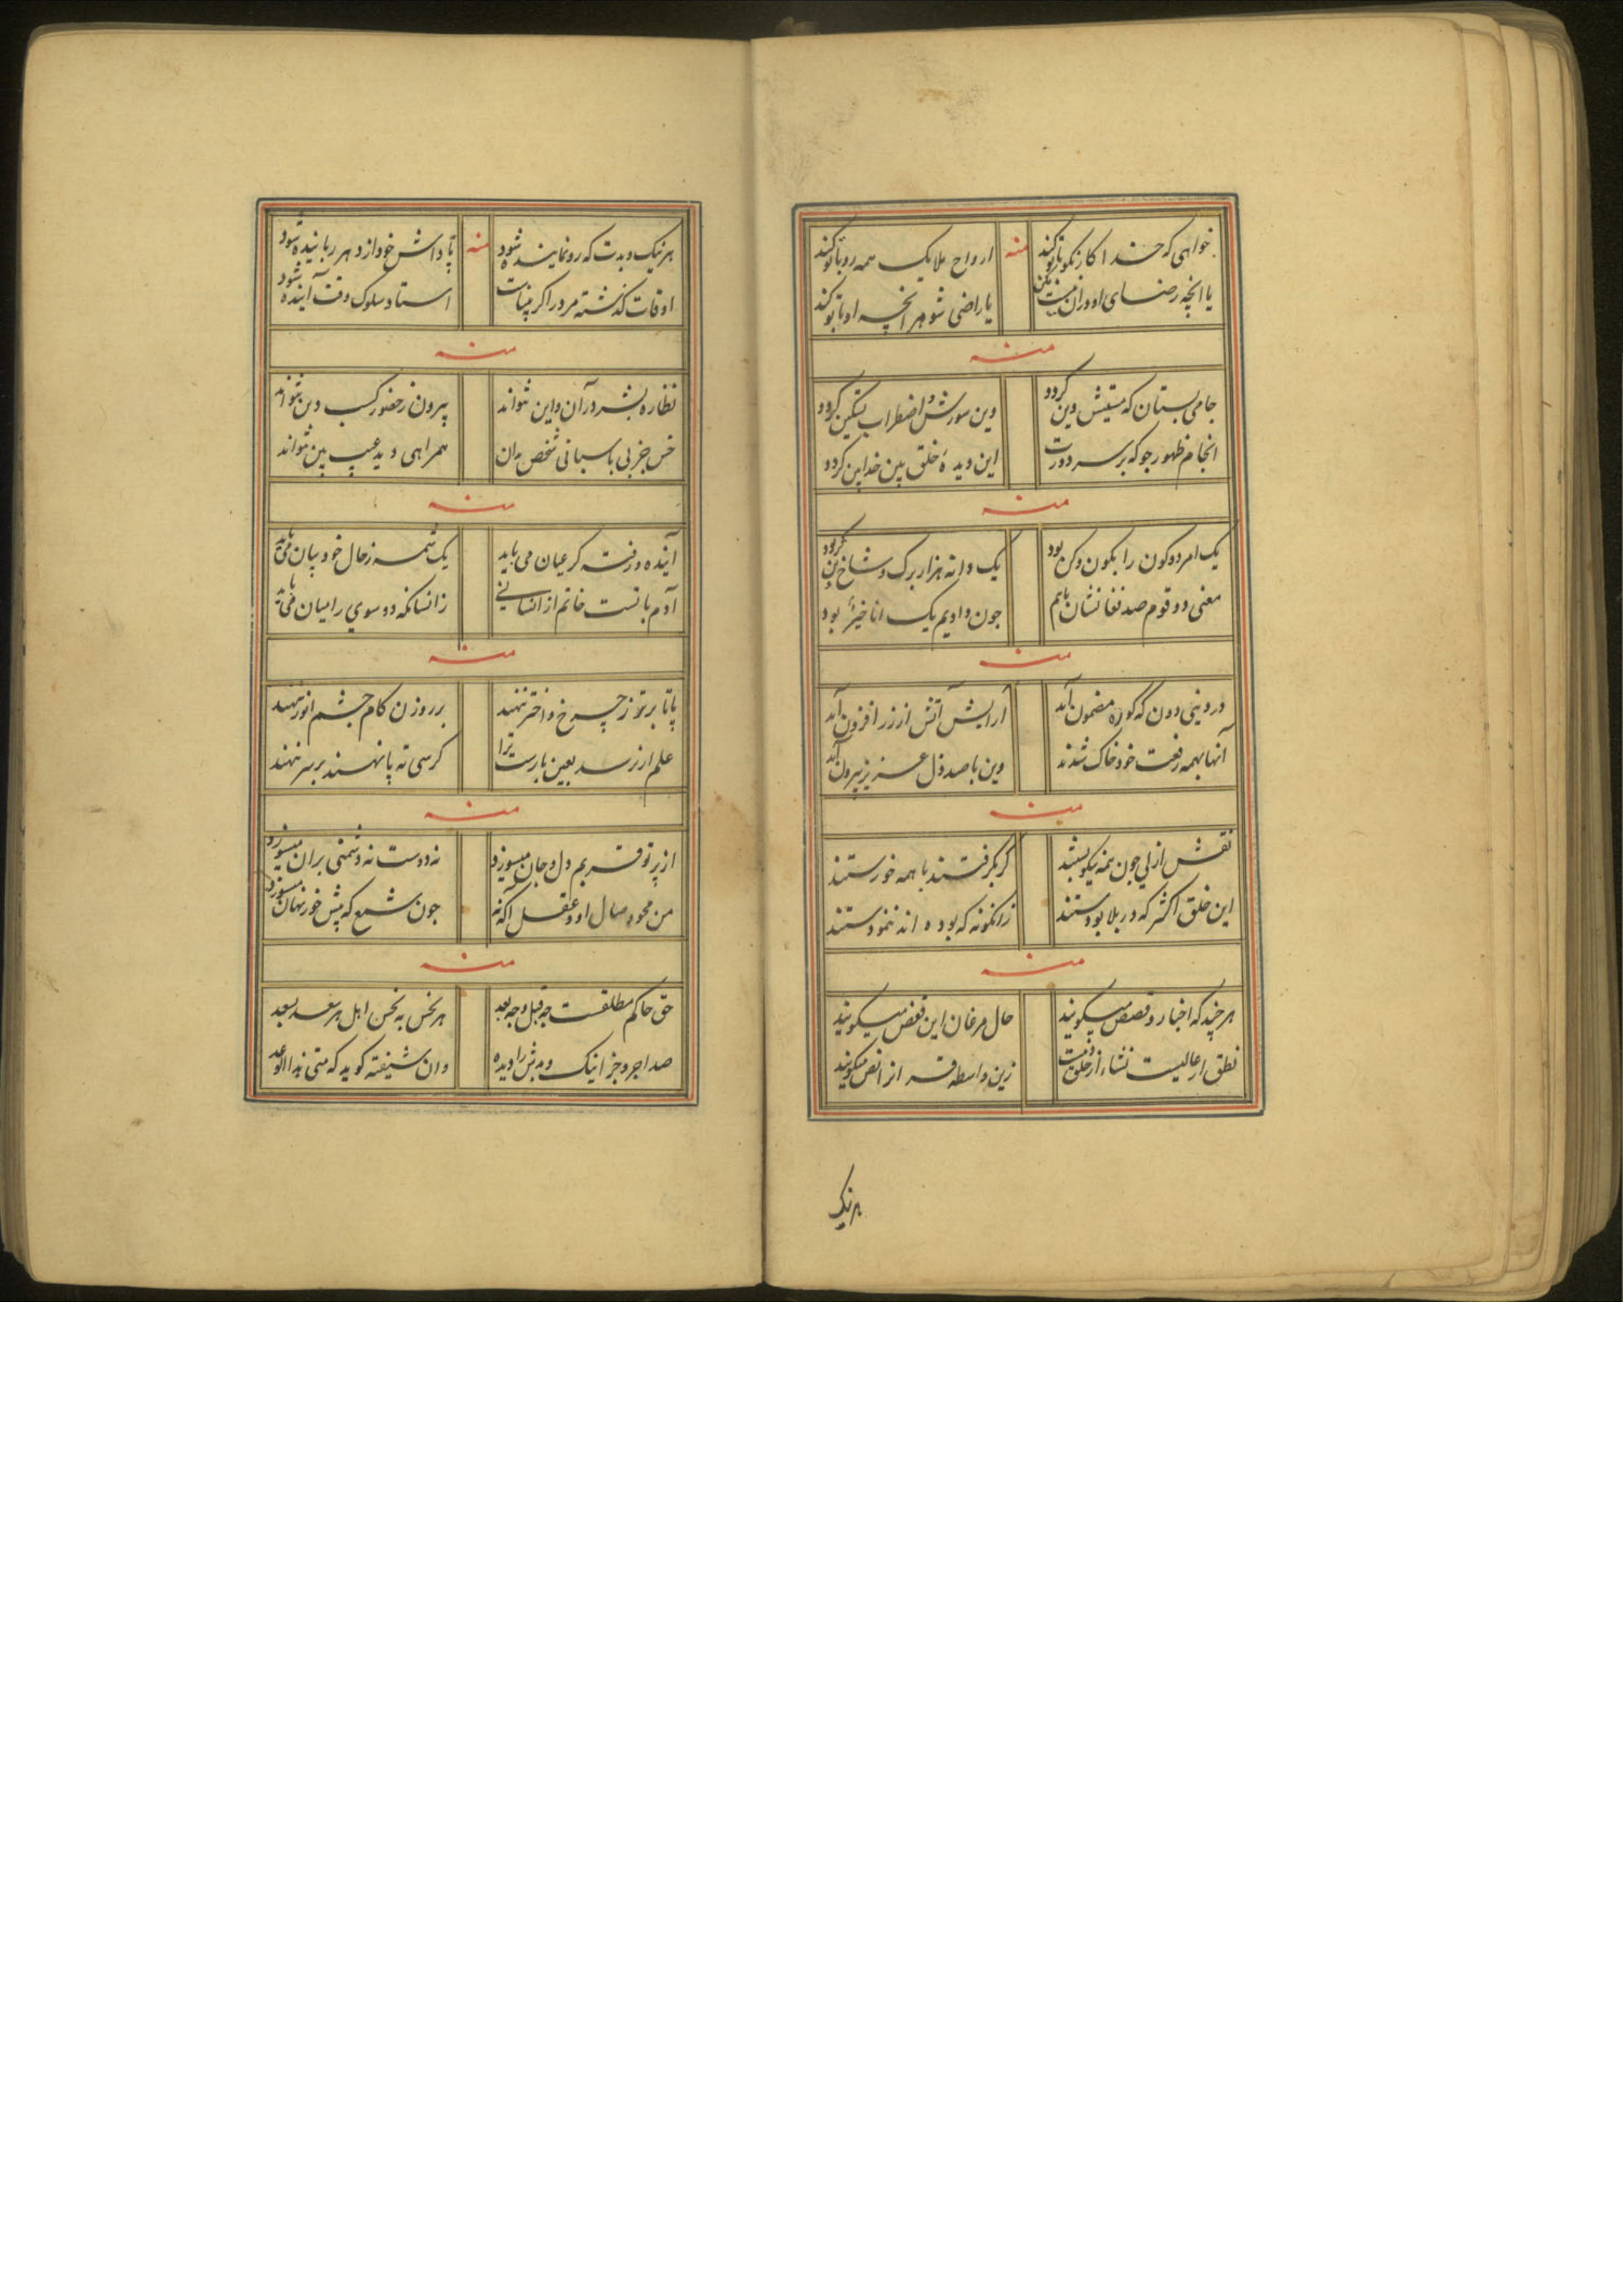 خواهی که خدا کار نکو با تو کند منه ارواح ملایک همه رو با تو کند
یا انچه رضای او در آن نیست مکن یا راضی شو هر انچه او با تو کند
منه
جامی بستان که مستیش دین گردد وین سوزش و اضطراب تسکین گردد
انجام ظهور جو که بر سر دورت این دیدهٔ خلق بین خدا بین گردد
منه
یک امر دو کون را بکون و کن بود یک دانه هزار برک و شاخ و بن بود
معنی دو قوم صد نغا نشان باهم جون دادیم یک انا خیر بود
منه
در دینی دون که کوره مضمون آید ارایش آتش از زر افزون آید
آنها بهمه رفعت خود خاک شدند وین با صد ذل عزیز بیرون آید
منه
نقش ازلی جون همه نیکو بستند کر بکرفتند با همه خورستند
این خلق اکثر که در بلا بودستند زانکونه که بوده اند ننمودستند
منه
هر چند که اخبار و قصص میکویند حال مرغان این قفص میکویند
نطق ار عالیست نشاء از خلق زین واسطه قر از انص میکویند
هر نیک
هر نیک و بدت که رو نماینده شود منه پاداش خود از دهر رباینده شود
اوقات کذشته مرد را کر بیناست استاد سلوک وقت آینده شود
منه
نظاره بشر در آن و این نتواند بیرون ز حضور کسب دین نتواند
خس جز بی پاسبانی شخص بدان همراهی دید عیب بین نتواند
منه
آینده و رفته کر عیان می باید یک شمه ز حال خود بیان می باید
آدم بانست خاتم از انسانی زانسانکه دو سوی را میان می باید
منه
پا تا بر تو ز چرخ و اختر ننهند بر روزن کام چشم انور ننهند
علم ار نرسد بعین بارست ترا کرسی ته پا نهند بر سر ننهند
منه
از پرتو قربم دل و جان میسوزد نه دوست نه دشمنی بران میسوزد
من محو وصال او و عقل آکه نه جون شمع که پیش خور نهان میسوزد
منه
حق حاکم مطلقست چه قبل و چه بعد هر نحس به نحس اهل هر سعد بسعد
صد اجر و جزا نیک و بدش را دیده وان شیفته کوید که متی هذا الوعد